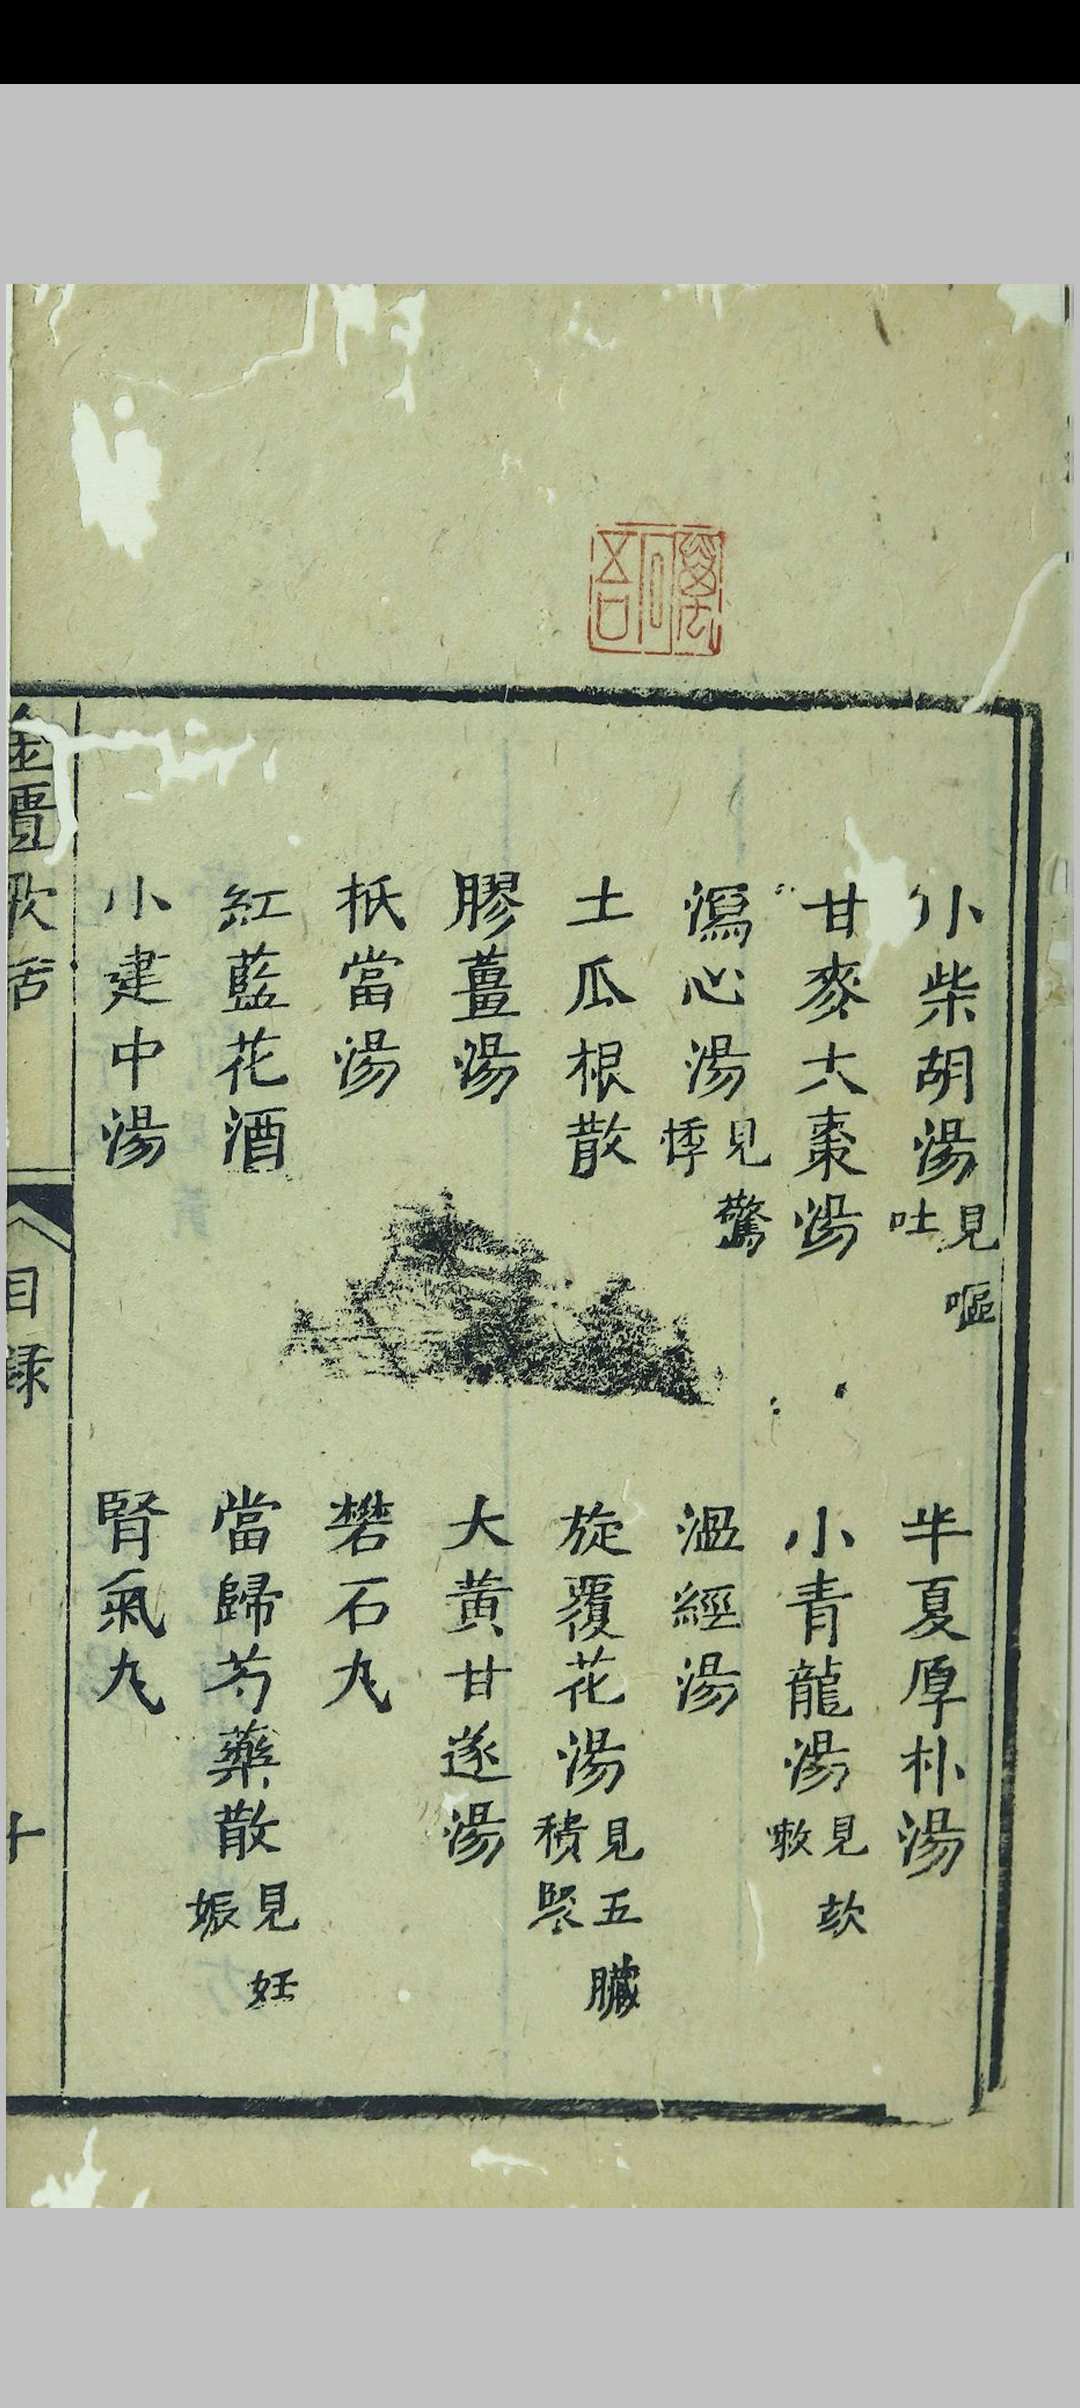 小柴胡湯見嘔吐
半夏厚朴湯
甘麥大棗湯
小青龍湯見欬嗽
瀉心湯見驚悸
溫經湯
土瓜根散
旋覆花湯見五臟積聚
膠薑湯
大黃甘遂湯
抵當湯
礬石丸
紅藍花酒
當歸芍藥散見妊娠
小建中湯
腎氣丸
金匱歌括
目録
十